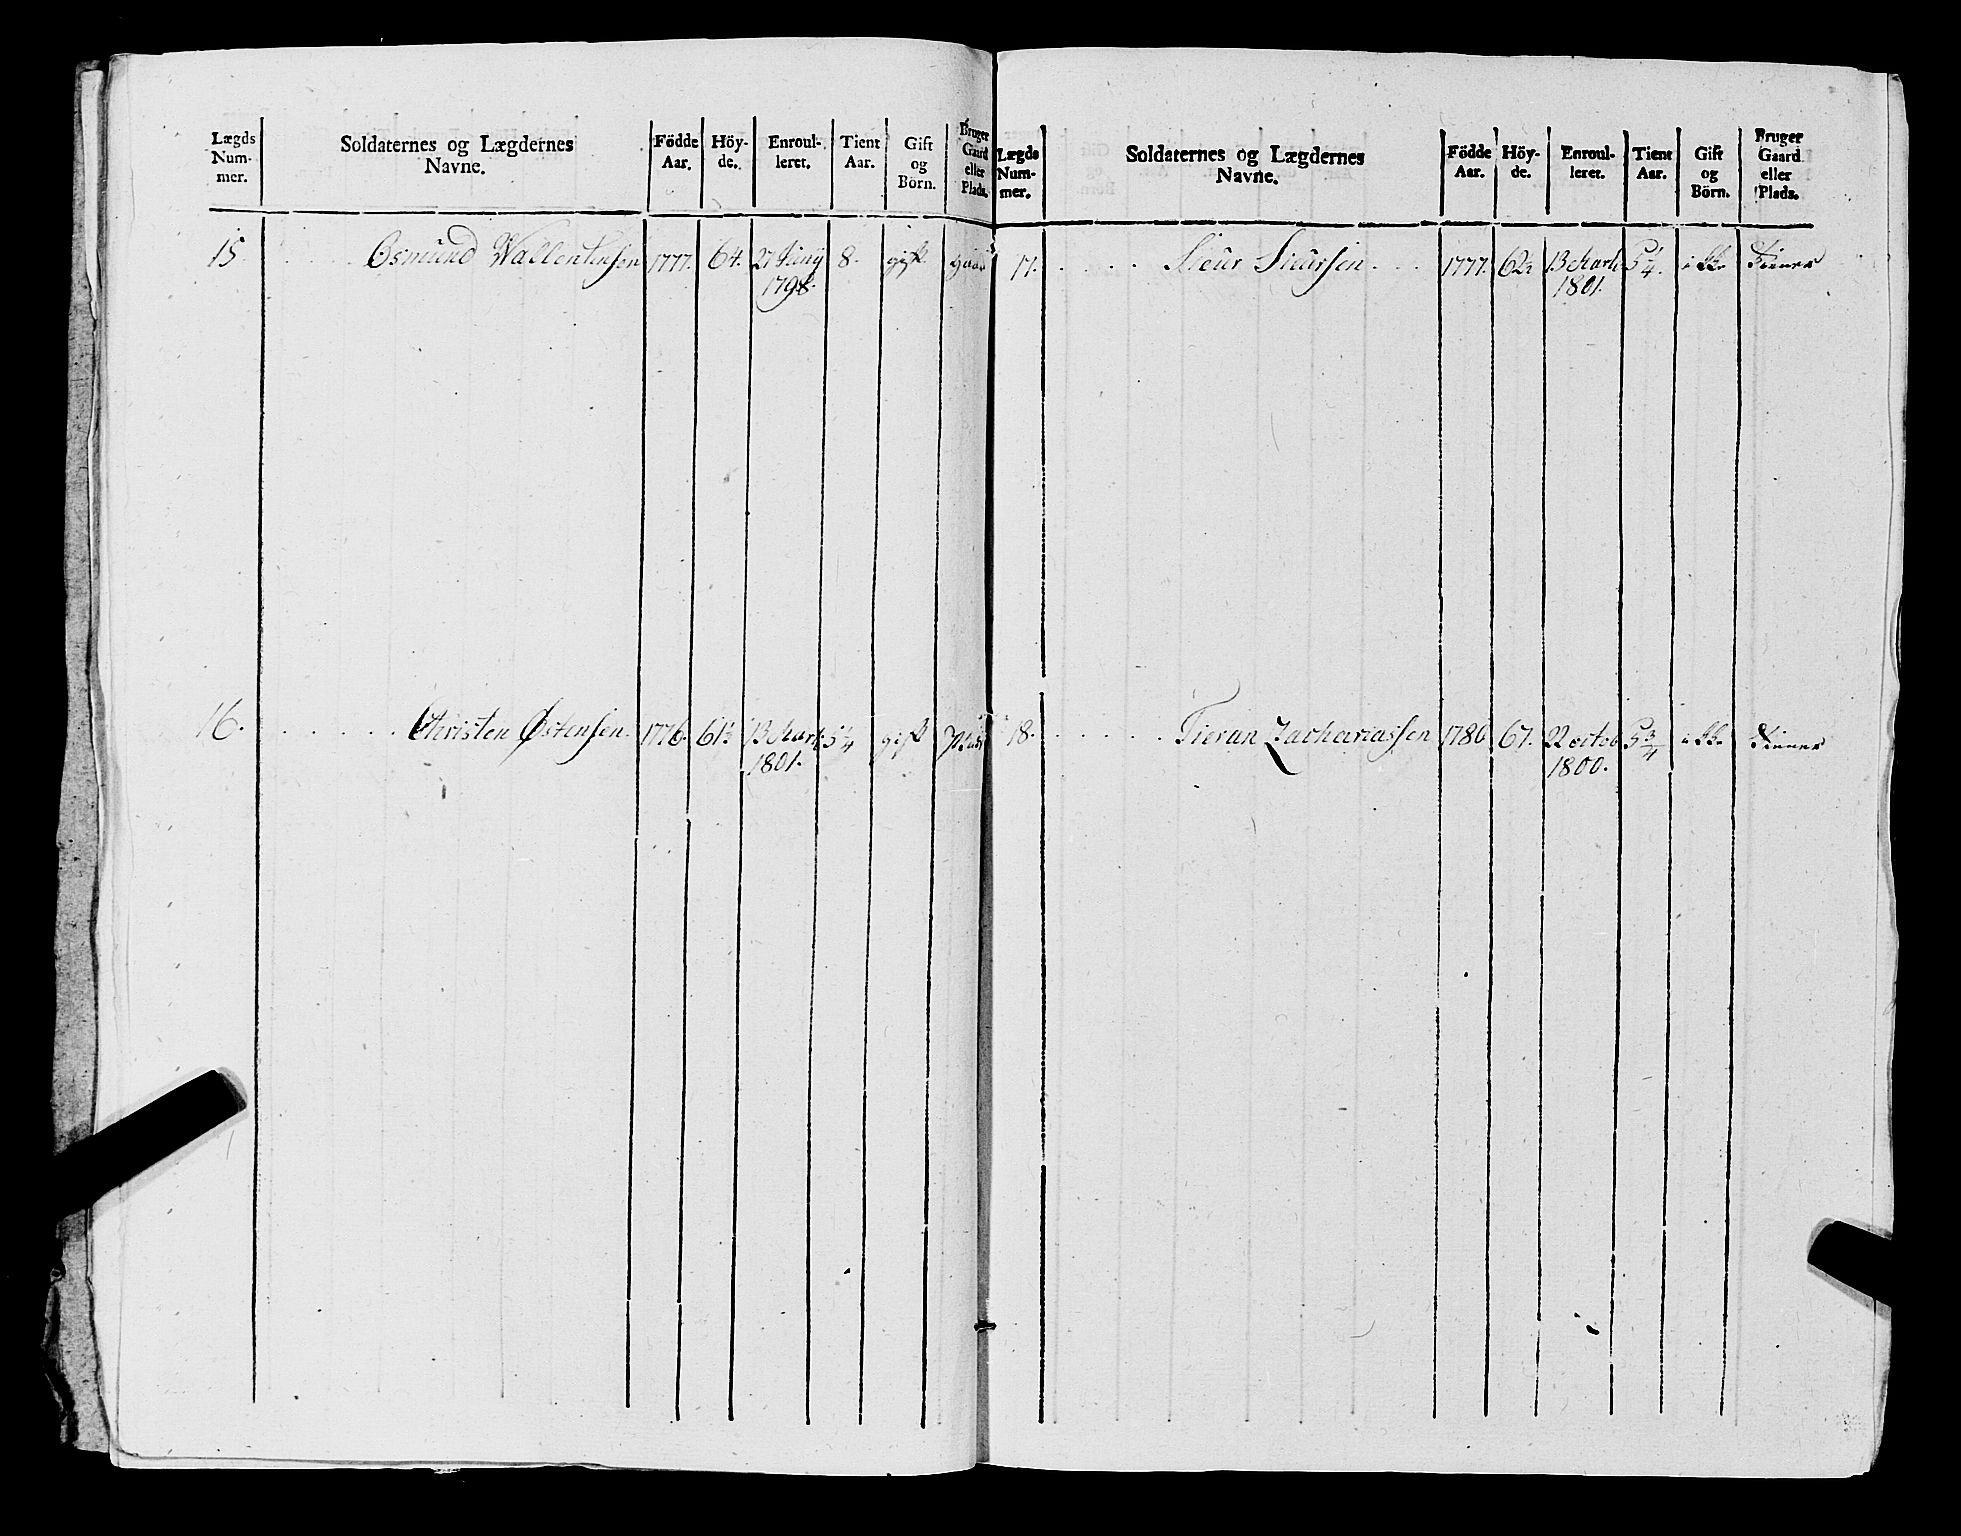 Lægds Num- mer.
Soldaternes og Lægdernes Navne.
Födde Aar.
Höy- de.
Enroul- leret.
Tient Aar.
Gift og Börn.
Bruger Gaard eller Plads.
15. Osmund Wallentensen 1777. 64. 27 Juny 8. gift gaard
1798.
16. Christen Østensen. 1776. 61½ 13 Mart. 5¼ gift Plads
1801.
Lægds Num- mer.
Soldaternes og Lægdernes Navne.
Födde Aar.
Höy- de.
Enroul- leret.
Tient Aar.
Gift og Börn.
Bruger Gaard eller Plads.
17. Sieur Siursen 1777. 62½ 13 Marti 5¼. ikke Tiener
1801.
18. Tieran Zachariassen 1780 67. 22 octob 5¾ ikke Tiener
1800.